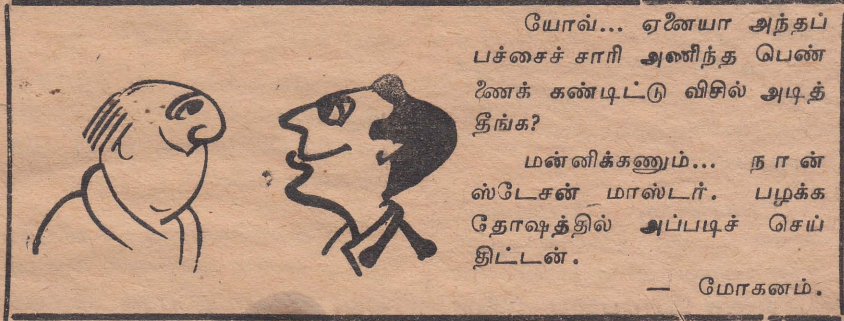 யோவ்... ஏனையா அந்தப்
பச்சைச் சாரி அணிந்த பெண்
ணைக் கண்டிட்டு விசில் அடித்
தீங்க?
மன்னிக்கணும்... நான்
ஸ்டேசன் மாஸ்டர். பழக்க
தோஷத்தில் அப்படிச் செய்
திட்டன்.
— மோகனம்.